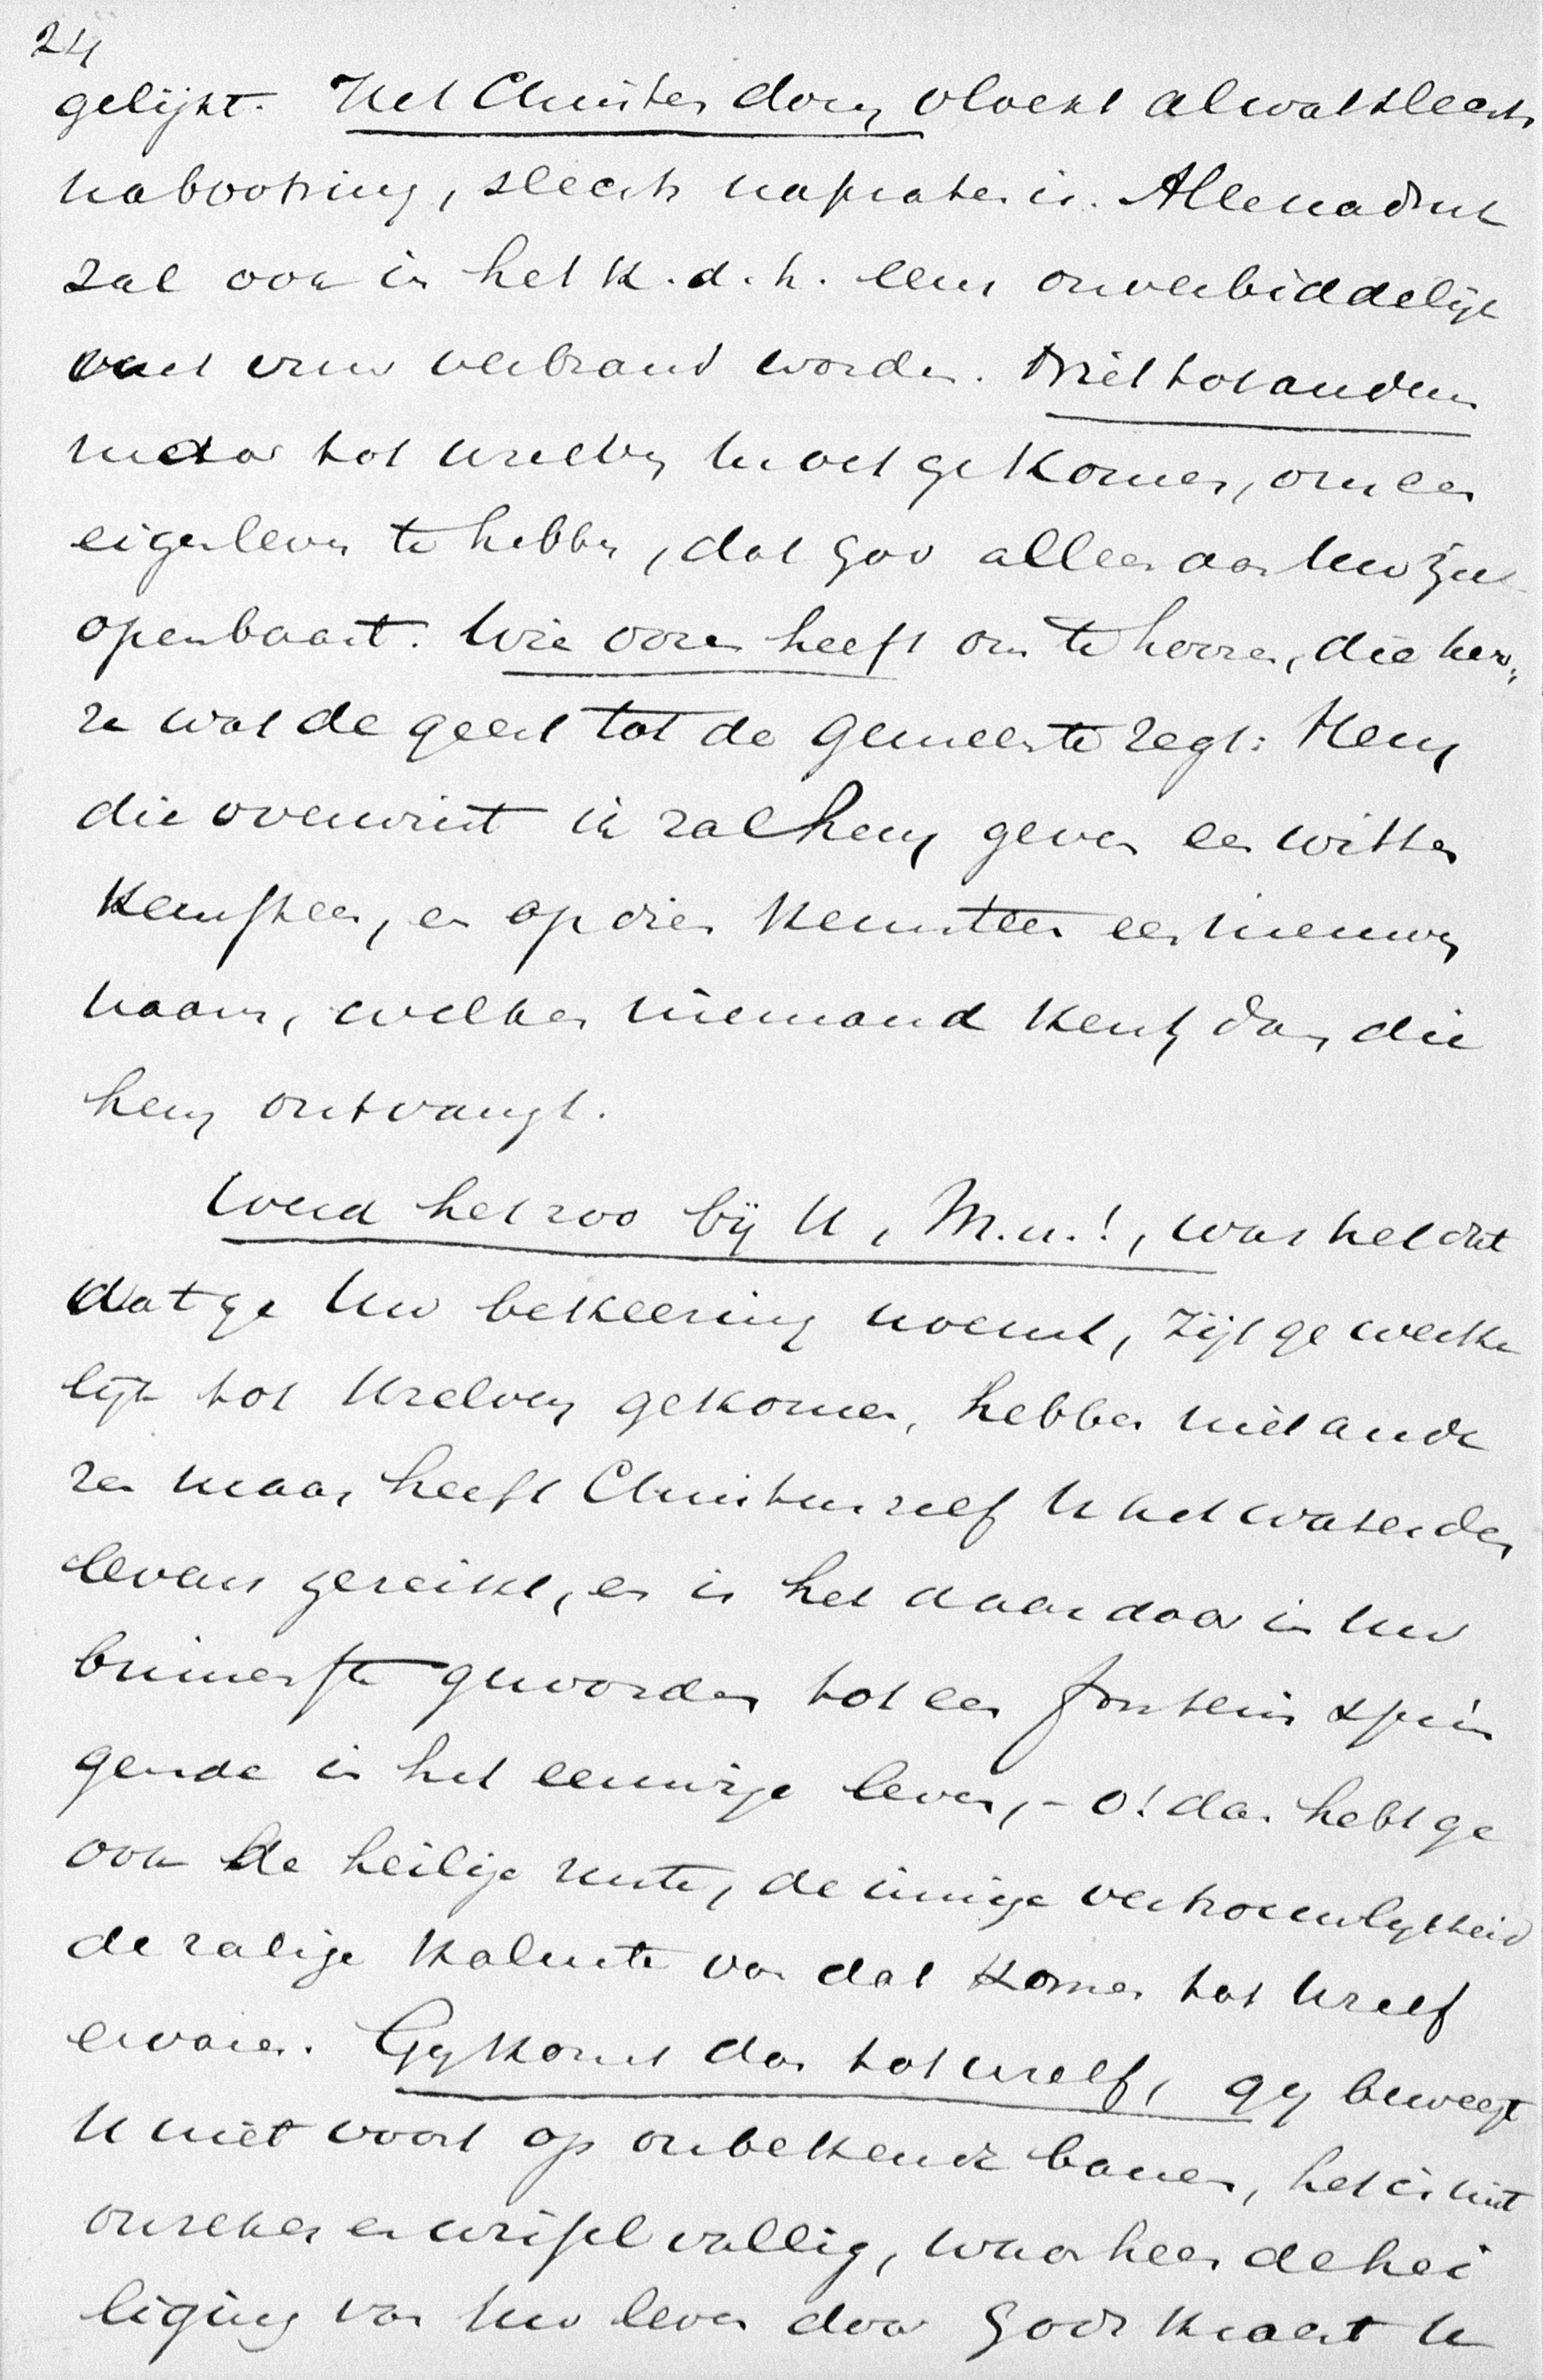 24
gelijkt. Het Christendom vloekt al wat slechts
nabootsing, slechts napraten is. Alle nadruk
zal ook in het K. d. h. eens onverbiddelijk
met vuur verbrand worden. Niet tot anderen
maar tot Uzelven moet ge komen, om een
eigen leven te hebben, dat God alleen aan Uw ziel
openbaart. Wie ooren heeft om te hooren, die hoo„
re wat de geest tot de gemeente zegt: Hem
die overwint ik zal hem geven een witten
Keursteen, en op dien Keursteen een nieuwen
naam, welken niemand kent, dan die
hem ontvangt.
Werd het zoo bij U, M. v.!, was het dit
dat ge Uw bekeering noemt, zijt ge werke
lijk tot Uzelven gekomen, hebben niet ande
ren maar heeft Christus zelf U het water des
levens gereikt, en is het daardoor in Uw
binnenste geworden tot een fontein sprin
gende in het eeuwige leven, - o! dan hebt ge
ook de heilige ruste, de innige vertrouwlykheid
de zalige kalmte van dat komen tot Uzelf
ervaren. Gy komt dan tot Uzelf, gy beweegt
U niet voort op onbekende banen, het is niet
onzeker en wispelvallig, waarheen de hei
liging van Uw leven door Gods kracht U